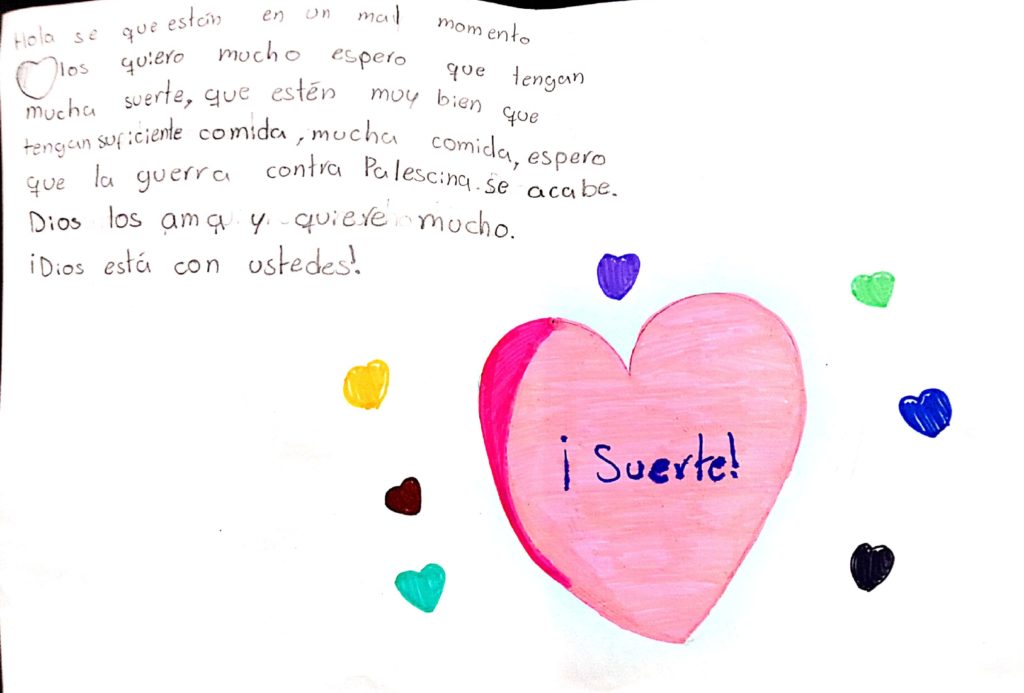 Hola se que están en un mal momento
los quiero mucho espero que tengan
mucha suerte, que estén muy bien que
tengan suficiente comida, mucha comida, espero
que la guerra contra Palescina se acabe.
Dios los ama y quiere mucho.
¡Dios está con ustedes!
¡Suerte!